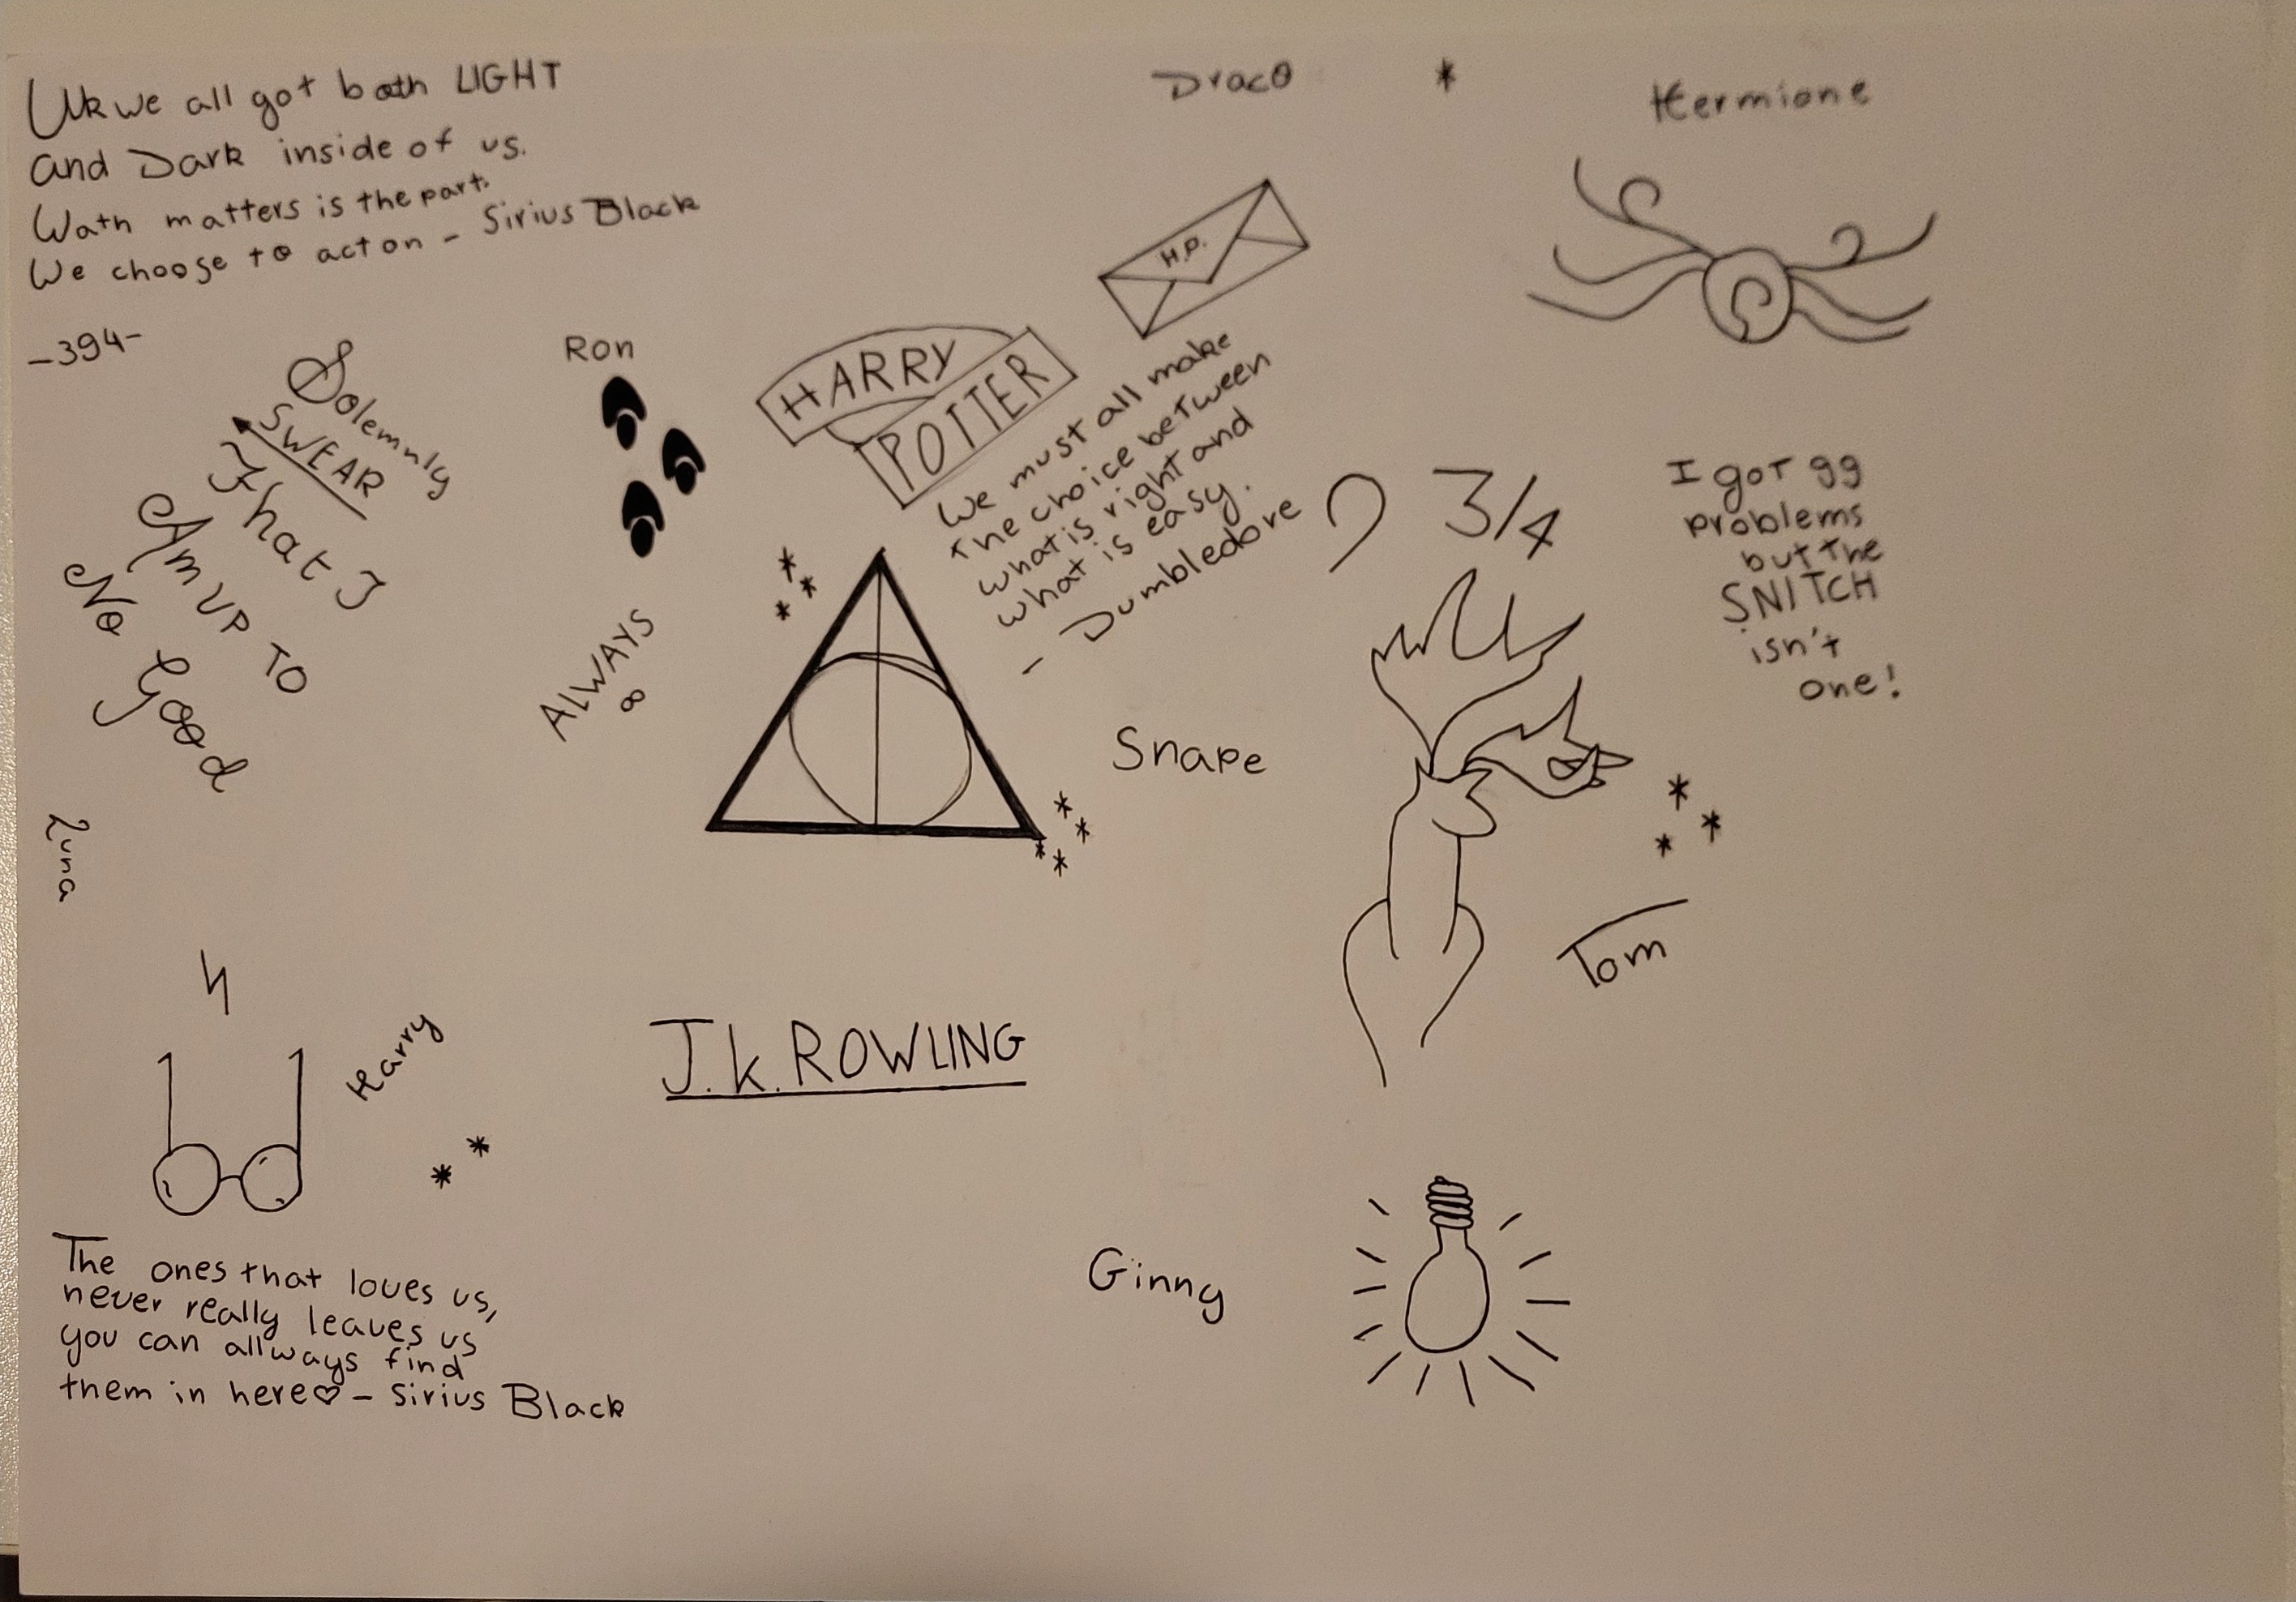 we all got both LIGHT
and Dark inside of us.
Wath matters is the part
We choose to act on - Sirius Black
-394-
Draco
Hermione
H.P.
Ron
HARRY
POTTER
Solemnly
SWEAR
That I
Am UP TO
No Good
We must all make
the choice between
what is right and
what is easy.
- Dumbledore
9 3/4
I got 99
problems
but the
SNITCH
isn't
one!
ALWAYS
Snape
Luna
Tom
Harry
J.k.ROWLING
The ones that loves us,
never really leaves us
you can allways find
them in here♡ - Sirius Black
Ginny